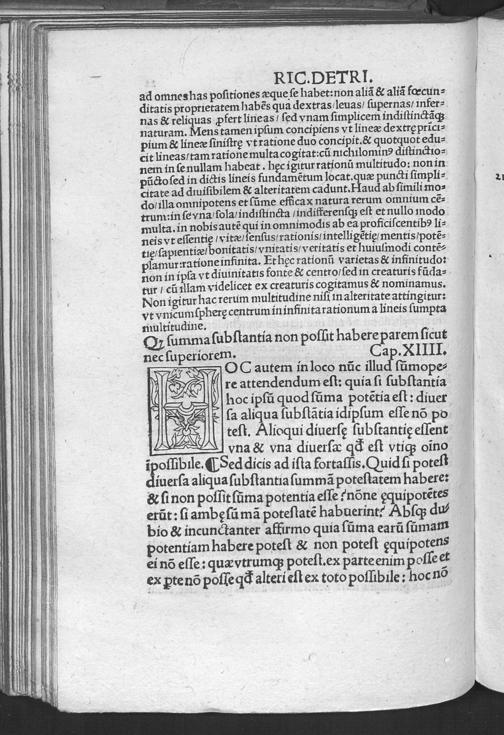 RIC.DETRI.
ad omnes has positiones æque se habet: non aliā & aliā fœcun-
ditatis proprietatem habēs qua dextras/leuas/supernas/infer-
nas & reliquas ꝓfert lineas/sed vnam simplicem indistinctāq;
naturam. Mens tamen ipsum concipiens vt lineæ dextrę prīci-
pium & lineæ sinistrę vt ratione duo concipit. & quotquot edu-
cit lineas/tam ratione multa cogitat: cū nichilominꝰ distinctio-
nem in se nullam habeat. hęc igitur rationū multitudo: non in
pūcto sed in dictis lineis fundamētum locat. quæ puncti simpli-
citate ad diuisibilem & alteritatem cadunt. Haud ab simili mo-
do/illa omnipotens et sūme efficax natura rerum omnium cē-
trum: in se vna/sola/indistincta/indifferensq; est et nullo modo
multa. in nobis autē qui in omnimodis ab ea proficiscentibꝰ li-
neis vt essentię/vitæ/sensus/rationis/intelligētię/mentis/potē-
tię/sapientiæ/bonitatis/vnitatis/veritatis et huiusmodi contē-
plamur: ratione infinita. Et hęc rationū varietas & infinitudo:
non in ipsa vt diuinitatis fonte & centro/sed in creaturis fūda-
tur/cū illam videlicet ex creaturis cogitamus & nominamus.
Non igitur hac rerum multitudine nisi in alteritate attingitur:
vt vnicum spherę centrum in infinita rationum a lineis sumpta
multitudine.
Qꝫ summa substantia non possit habere parem sicut
nec superiorem. Cap.XIIII.
HOC autem in loco nūc illud sūmope-
re attendendum est: quia si substantia
hoc ipsū quod sūma potētia est: diuer
sa aliqua substātia idipsum esse nō po
test. Alioqui diuersę substantię essent
vna & vna diuersæ qđ est vtiq; oīno
īpossibile. ¶Sed dicis ad ista fortassis. Quid si potest
diuersa aliqua substantia summā potestatem habere:
& si non possit sūma potentia esse? nōne ęquipotētes
erūt: si ambę sūmā potestatē habuerint? Absq; du-
bio & incunctanter affirmo quia sūma earū sūmam
potentiam habere potest & non potest ęquipotens
ei nō esse: quæ vtrumq; potest. ex parte enim posse et
ex pte nō posse qđ alteri est ex toto possibile: hoc nō